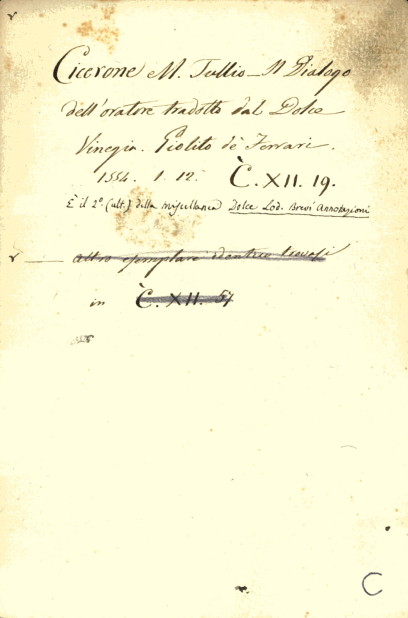 Cicerone M. Tullio – Il Dialogo
dell'oratore tradotto dal Dolce
Vinegia. Giolito de' Ferrari.
1554. 1. 12. C̀. XII. 19.
È il 2º (ult.) della miscellanea Dolce Lod. Brevi Annotazioni
altro esemplare identico trovasi
in C̀. XII. 57
C